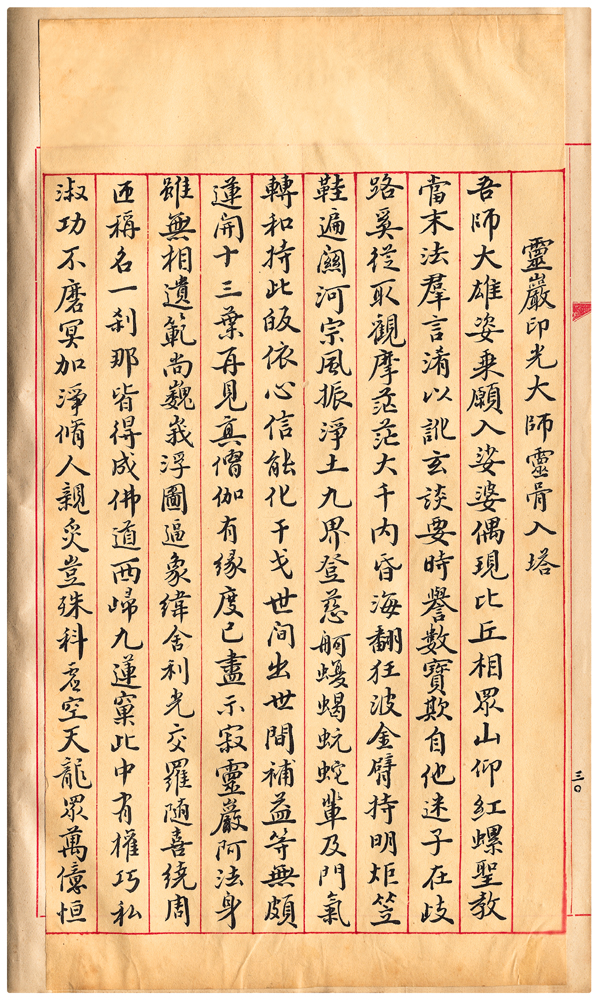 靈巖印光大師靈骨入塔
吾師大雄姿乗願入娑婆偶現比丘相眾山仰紅螺聖教
當末法羣言淆以訛玄談要時譽數寶欺自他迷子在歧
路奚從取觀摩茫茫大千内昏海翻狂波金臂持明炬笠
鞋遍關河宗風振淨土九界登慈舸蝮蝎蚖蛇輩及門氣
轉和持此皈依心信能化干戈世间出世間補益等無頗
蓮開十三葉再見真僧伽有緣度已盡示寂靈巖阿法身
雖無相遺範尚巍峩浮圖逼象緯舍利光交羅随喜繞周
匝稱名一刹那皆得成佛道西歸九蓮窠此中有權巧私
淑功不磨冥加淨脩人親炙豈殊科虚空天龍眾萬億恒
三〇